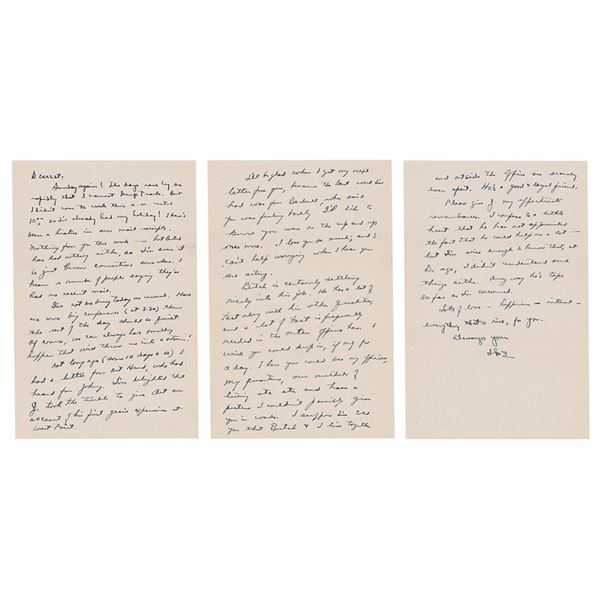 Dearest,
Sunday again! The days race by so
rapidly that I cannot keep track. But
I didn't come to work this a.m. until
10:00 so I've already had my holiday! There's
been a hiatus in our mail receipts.
Nothing from you this week — but Butch
has had nothing either, so I'm sure it
is just bum connections somewhere. I
hear a number of people saying they've
had no recent mail.
I'm not so busy today as usual. Have
one more big conference (at 2:30) then
the rest of the day should be quiet.
Of course, we can always have something
happen that will throw us into a storm!
Not long ago (some 10 days or so) I
had a letter from Art Hurd, who had
heard from Johnny. I'm delighted the
boy took the trouble to give Art an
account of his first year's experience at
West Point.
I'll be glad when I get my next
letter from you, because the last word I've
had was from Butch, who said
you were feeling poorly. I'd like to
know you were on the up and up
once more. I love you so much, and I
can't help worrying when I hear you
are ailing.
Butch is certainly settling
nicely into his job. He has a lot of
tact along with his other qualities
and a lot of tact is frequently
needed in the outer office here. I
wish you could drop in, if only for
a day. Then you could see my offices,
my quarters, our methods of
living etc etc and have a
picture I couldn't possibly give
you in words. I suppose I've told
you that Butch & I live together
and outside the office are scarcely
ever apart. He's a good & loyal friend.
Please give my affectionate
remembrances. I confess to a little
hurt that he has not appreciated
the fact that he could help me a lot
but I'm wise enough to know that, at
his age, I didn't understand such
things either. Anyway he's tops
so far as I'm concerned.
Lots of love — happiness — interest —
everything that's nice, for you.
Always yours
Ike